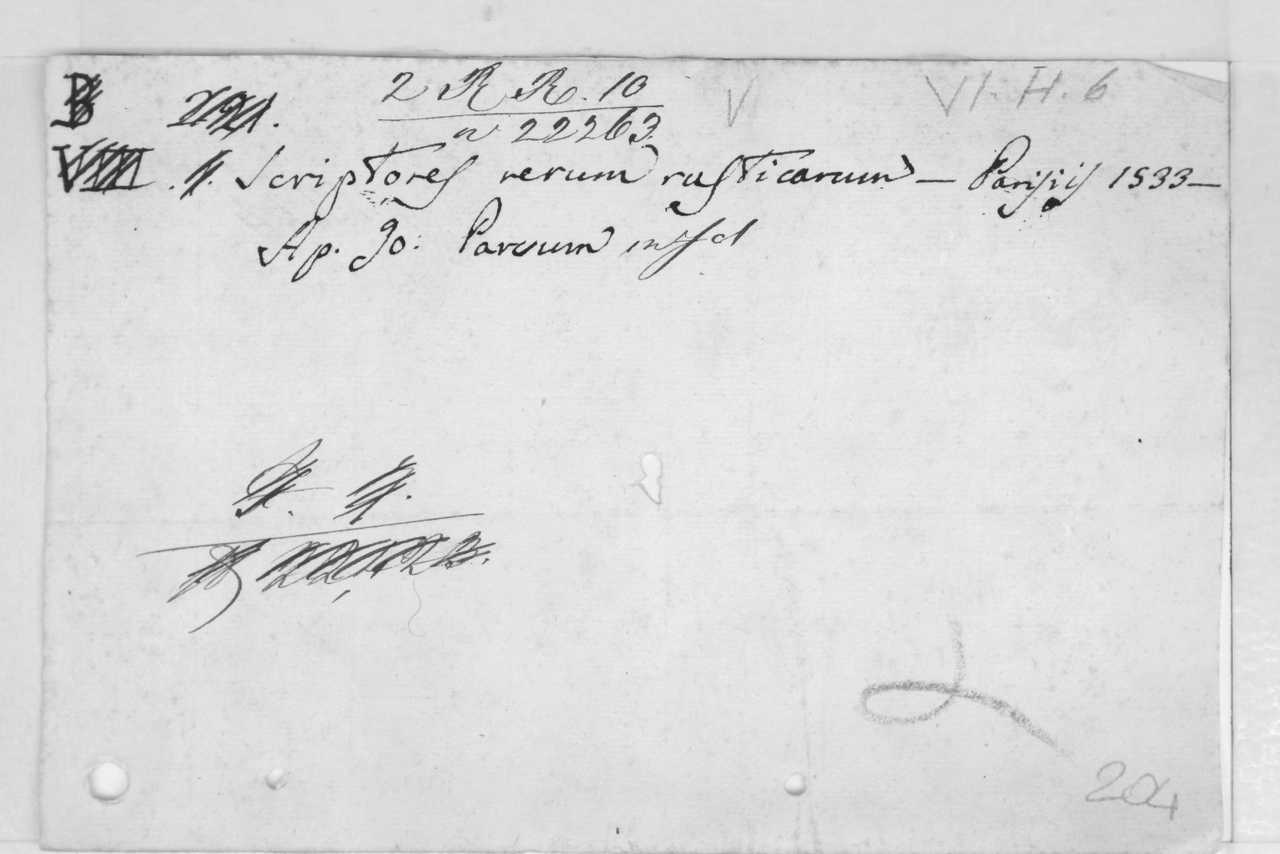 2 R R. 10
n 22263
VI. H. 6
Scriptores rerum rusticarum — Parisijs 1533 —
Ap. Jo: Parvum in fol
204